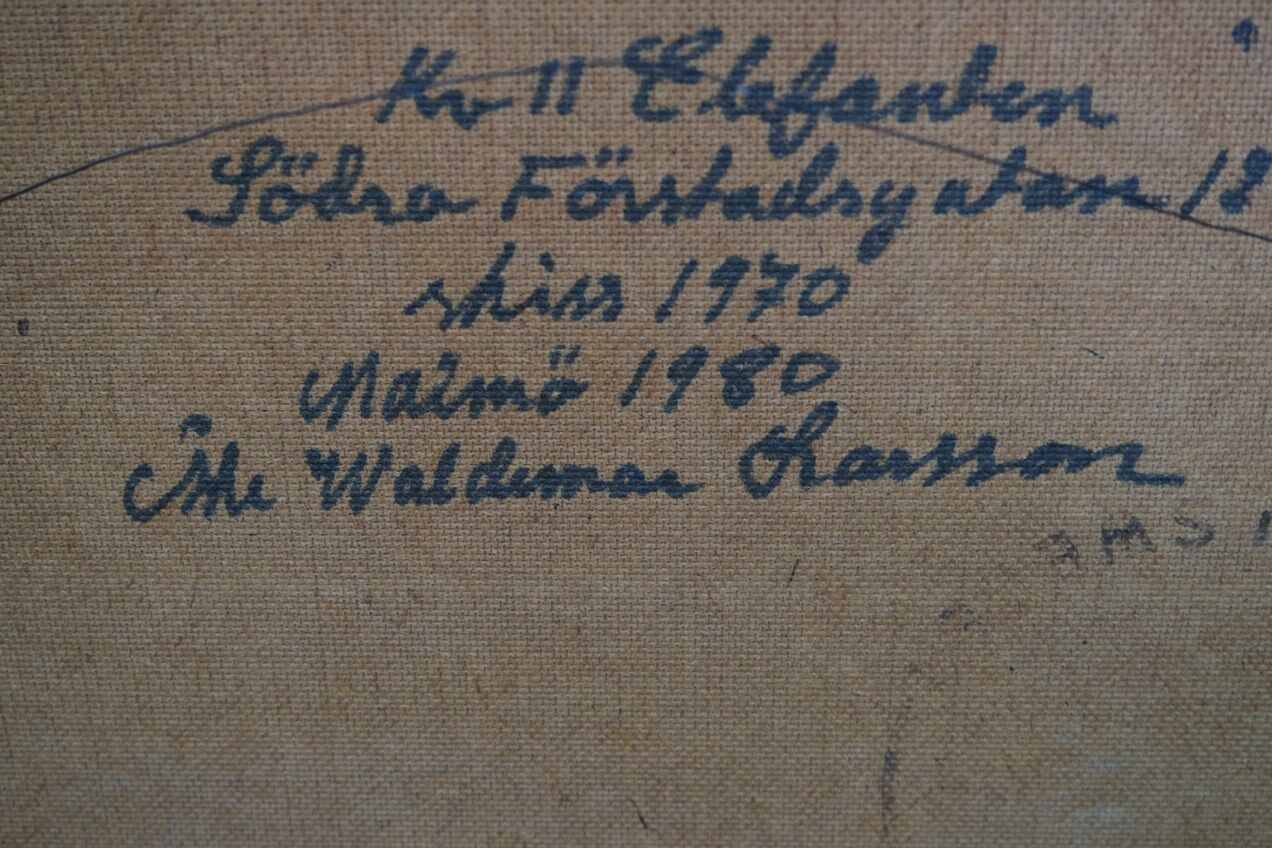 Kv 11 Elefanten
Södra Förstadsgatan 18
skiss 1970
Malmö 1980
Åke Waldemar Larsson